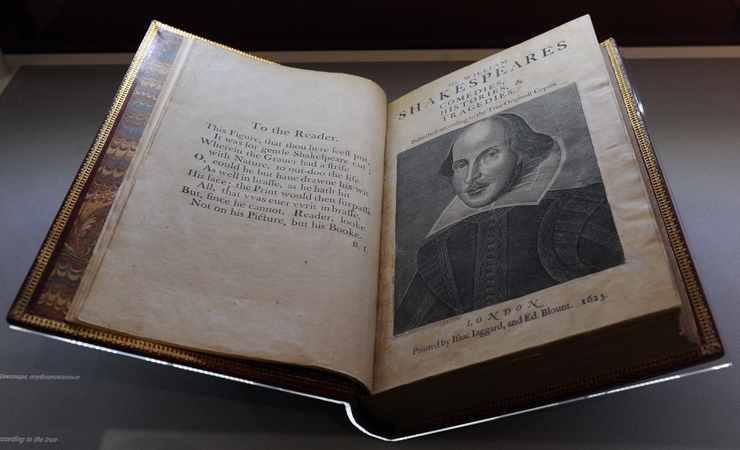 To the Reader.
This Figure, that thou here seest put,
It was for gentle Shakespeare cut;
Wherein the Grauer had a strife
with Nature, to out-doo the life:
O, could he but haue drawne his wit
As well in brasse, as he hath hit
His face; the Print would then surpasse
All, that vvas euer vvrit in brasse.
But, since he cannot, Reader, looke
Not on his Picture, but his Booke.
B. I.
Mr. WILLIAM
SHAKESPEARES
COMEDIES,
HISTORIES, &
TRAGEDIES.
Published according to the True Originall Copies.
LONDON
Printed by Isaac Iaggard, and Ed. Blount. 1623.
Шекспира, опубликованные
according to the true